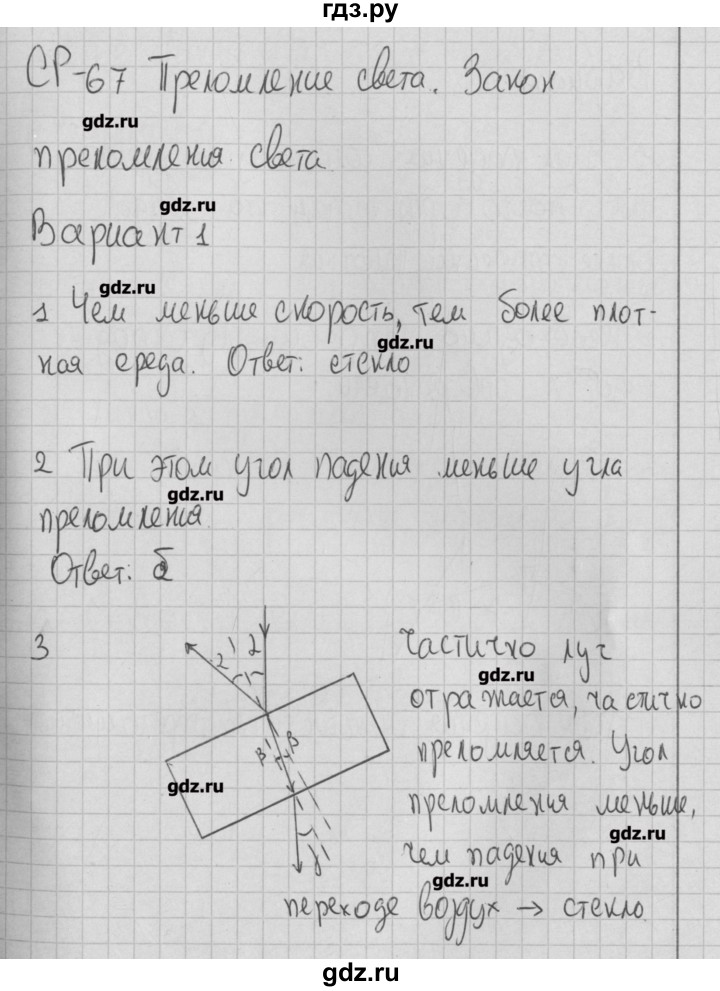 гдз.ру
СР-67 Преломление света. Закон
gdz.ru
преломления света
gdz.ru
Вариант 1
gdz.ru
1 Чем меньше скорость, тем более плот-
gdz.ru
ная среда. Ответ: стекло
2 При этом угол падения меньше угла
gdz.ru
преломления
Ответ: б
3
2 2
частично луч
gdz.ru
отражается, частично
β β
преломляется. Угол
gdz.ru
преломления меньше,
gdz.ru
γ
чем падения при
gdz.ru
переходе воздух → стекло.
gdz.ru